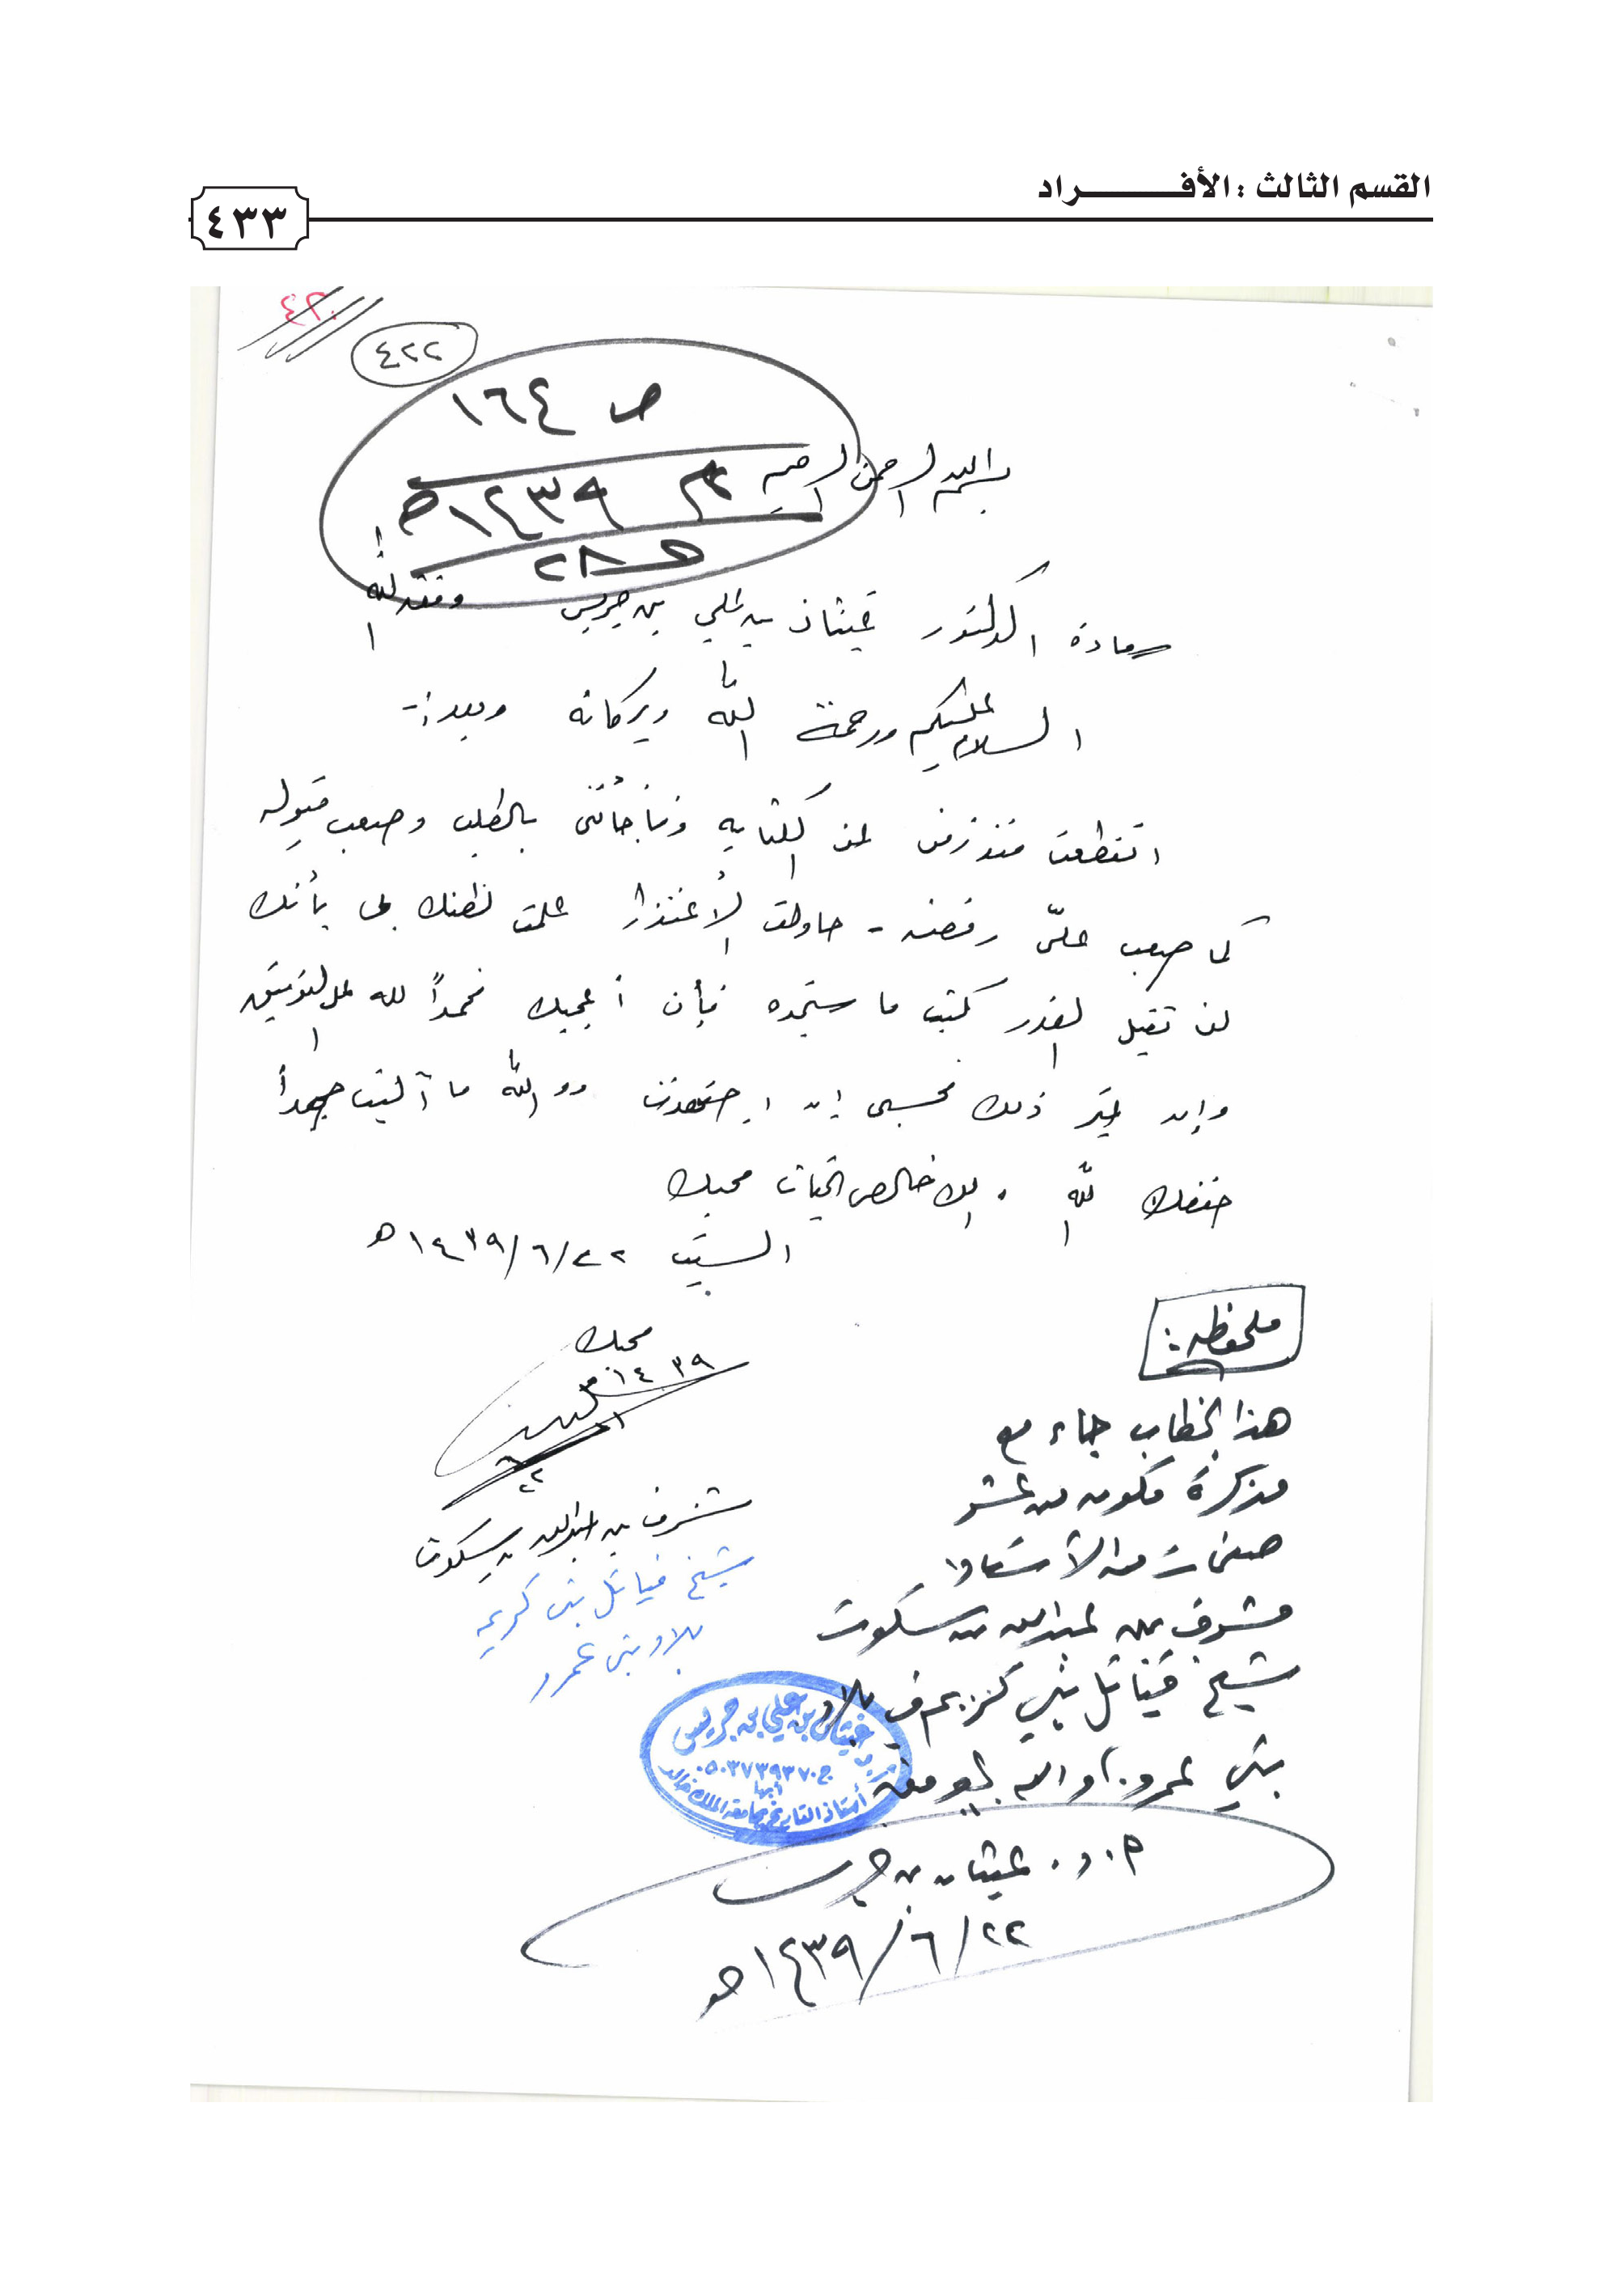 القسم الثالث : الأفـــــــراد
٤٣٣
٤٢٢
ص ١٦٤
١٤٣٩هـ
بسم الله الرحمن الرحيم
سعادة الدكتور غيثان بن علي بن جريس وفقه الله
السلام عليكم ورحمة الله وبركاته وبعد :-
انقطعت منذ زمن عن الكتابه وفاجأتنى بالطلب وصعب قبوله
كما صعب علىّ رفضه - حاولت الأعتذار علمت لظنك بى بأنك
لن تقبل العذر كتبت ما ستجده فإن أعجبك فحمداً لله على التوفيق
وإن غير ذلك فحسبى إن اجتهدت ووالله ما آليت جهداً
حفظك الله . ولك خالص التحيات محبك
السبت ٢٢/٦/١٤٣٩هـ
محبك
١٤٣٩
٦
٢٢
مشرف بن عبدالله بن سكوت
شيخ قبائل بنى كريم
بلاد بنى عمرو
ملحوظة :
هذا الخطاب جاء مع
مذكرة مكونه من عشر
صفحات من الأستاذ
مشرف بن عبدالله بن سكوت
شيخ قبائل بني كريم في بلاد
بني عمرو. والله الموفق
غيثان بن علي بن جريس
ج٠٥٠٣٧٣٩٣٧٠
أبها
أستاذ التاريخ بجامعة الملك خالد
أ. د. غيثان بن جريس
٢٢/٦/١٤٣٩هـ